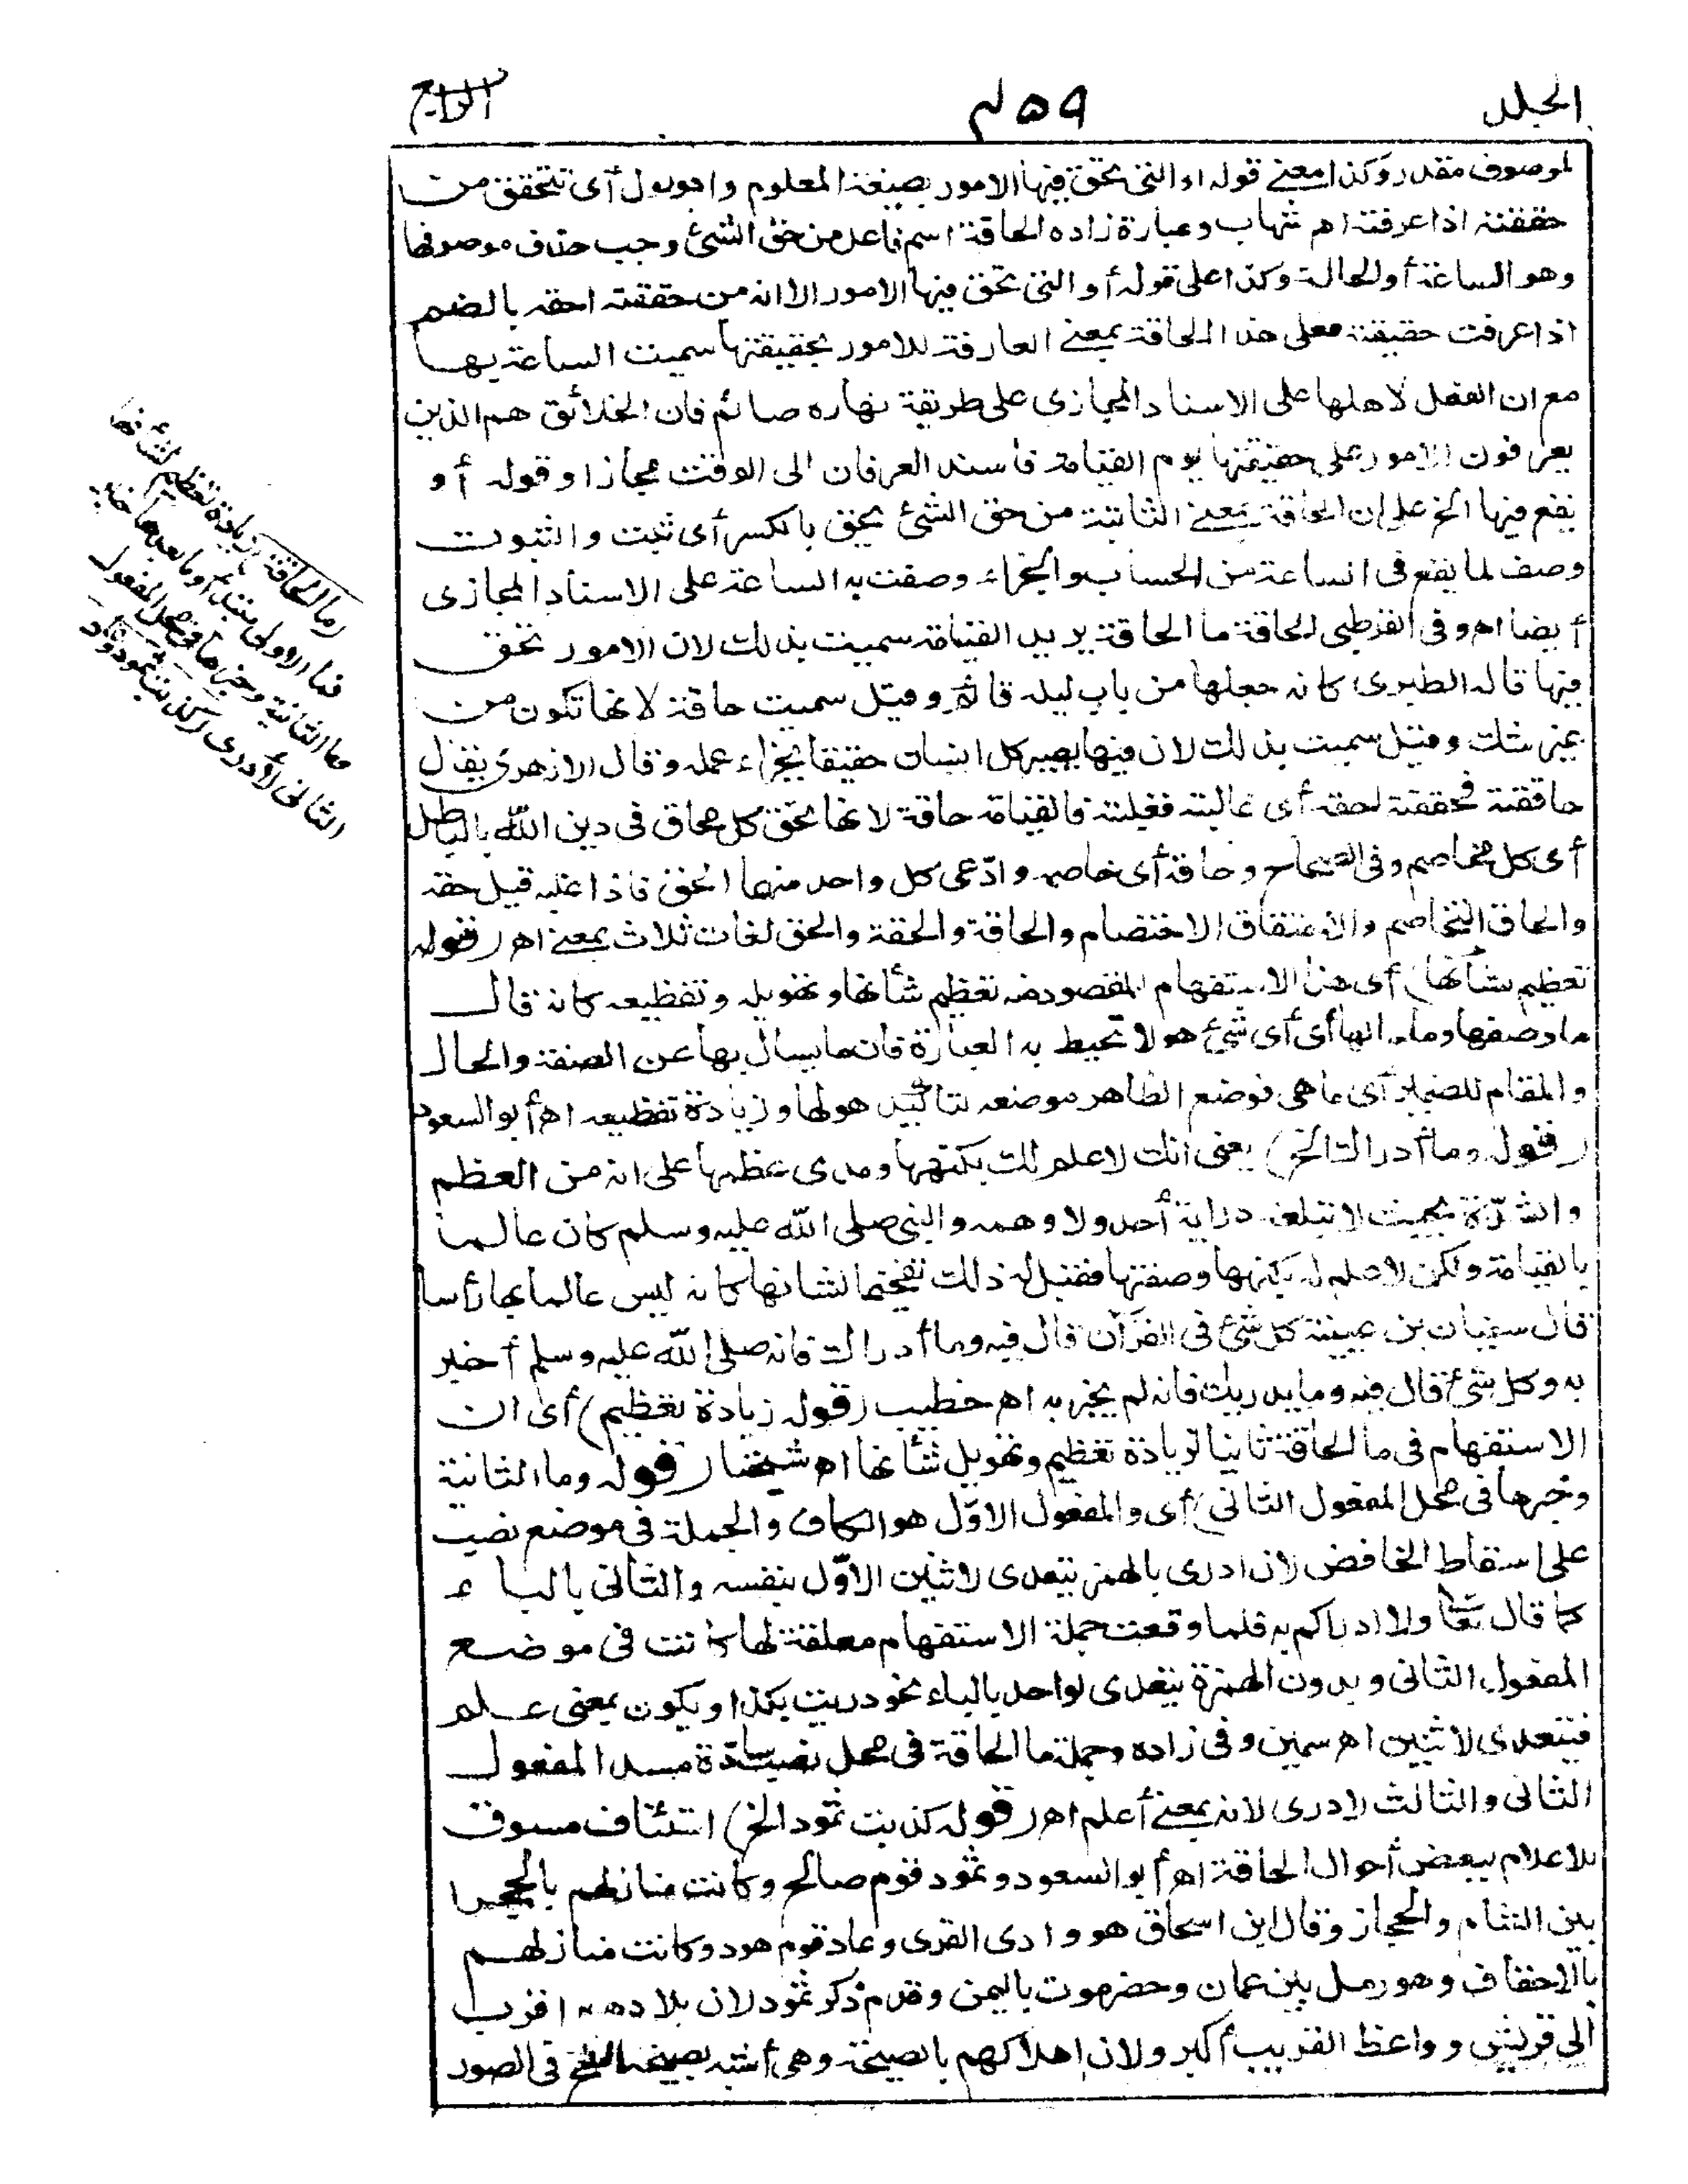 الجلد
٤٥٩
الرابع
لموصوف مقدر وكذا معنى قوله او التى تحق فيها الامور بصيغة المعلوم أى تتحقق من
حققته اذا عرفته اه شهاب وعبارة زاده الحاقة اسم فاعل من حق الشئ وجب حذف موصوفها
وهو الساعة أو الحالة وكذا على قوله أو التى تحق فيها الامور الا انه من حققته احقه بالضم
اذا عرفت حقيقته فعلى هذا الحاقة بمعنى العارفة للامور بحقيقتها سميت الساعة بها
مع ان الفعل لاهلها على الاسناد المجازى على طريقة نهاره صائم فان الخلائق هم الذين
يعرفون الامور على حقيقتها يوم القيامة فاسند العرفان الى الوقت مجازا وقوله أو
يقع فيها الخ على ان الحاقة بمعنى الثابتة من حق الشئ يحق بالكسر أى ثبت والثبوت
وصف لما يقع فى الساعة من الحساب والجزاء وصفت به الساعة على الاسناد المجازى
أيضا اه وفى القرطبى الحاقة ما الحاقة يريد القيامة سميت بذلك لان الامور تحق
فيها قاله الطبرى كانه جعلها من باب ليله قائم وقيل سميت حاقة لانها تكون من
غير شك وقيل سميت بذلك لان فيها يصير كل انسان حقيقا بجزاء عمله وقال الازهرى يقال
حاققته فحققته احقه أى غالبته فغلبته فالقيامة حاقة لانها تحق كل محاق فى دين الله بالباطل
أى كل مخاصم وفى الصحاح وحاقه أى خاصمه وادّعى كل واحد منهما الحق فاذا غلبه قيل حقه
والحاق التخاصم والاحتقاق الاختصام والحاقة والحقة والحق لغات ثلاث بمعنى اه (قوله
تعظيم شأنها) أى هذا الاستفهام المقصود منه تعظيم شأنها وتهويله وتفظيعه كانه قال
ما وصفها وما حالها أى أى شئ هو لا تحيط به العبارة فان ما يسال بها عن الصفة والحال
والمقام للضمير أى ما هى فوضع الظاهر موضعه لتاكيد هولها وزيادة تفظيعه اه أبو السعود
(قوله وما أدراك الخ) يعنى انك لا علم لك بكنهها ومدى عظمها على انه من العظم
والشدّة بحيث لا تبلغه دراية أحد ولا وهمه والنبى صلى الله عليه وسلم كان عالما
بالقيامة ولكن لا علم له بكنهها وصفتها فقيل له ذلك تفخيما لشانها كانه ليس عالما بها رأسا
قال سفيان بن عيينة كل شئ فى القرآن قال فيه وما أدراك فانه صلى الله عليه وسلم أخبر
به وكل شئ قال فيه وما يدريك فانه لم يخبر به اه خطيب (قوله زيادة تعظيم) أى ان
الاستفهام فى ما الحاقة ثانيا لزيادة تعظيم وتهويل شأنها اه شيخنا (قوله وما الثانية
وخبرها فى محل المفعول الثانى) أى والمفعول الاوّل هو الكاف والجملة فى موضع نصب
على اسقاط الخافض لان ادرى بالهمز يتعدى لاثنين الاوّل بنفسه والثانى بالباء
كما قال تعا ولا ادراكم به فلما وقعت جملة الاستفهام معلقة لها كانت فى موضع
المفعول الثانى وبدون الهمزة يتعدى لواحد بالباء نحو دريت بكذا ويكون بمعنى علم
فيتعدى لاثنين اه سمين وفى زاده وجملة ما الحاقة فى محل نصب سادّة مسد المفعول
الثانى والثالث لادرى لانه بمعنى أعلم اه (قوله كذبت ثمود الخ) استئناف مسوق
للاعلام ببعض أحوال الحاقة اه أبو السعود وثمود قوم صالح وكانت منازلهم بالحجر
بين الشام والحجاز وقال ابن اسحاق هو وادى القرى وعاد قوم هود وكانت منازلهم
بالاحقاف وهو رمل بين عمان وحضرموت باليمن وقدم ذكر ثمود لان بلادهم اقرب
الى قريش وواعظ القريب أكبر ولان اهلاكهم بالصيحة وهى أشبه بصيحة النفخ فى الصور
(وما الحاقة) زيادة تعظيم لشأنها
فما الاولى مبتدأ وما بعدها خبره
وما الثانية وخبرها فى محل المفعول
الثانى لأدرى (كذبت ثمود وعاد